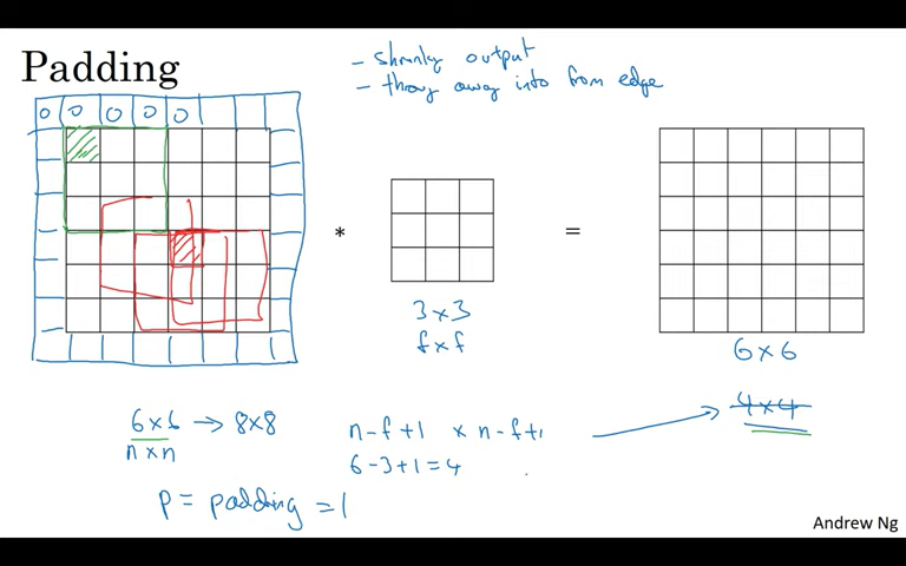 Padding
- shrinky output
- throw away info from edge
0 0 0 0 0
*
=
3×3
f×f
6×6
4×4
6×6 → 8×8
n×n
n-f+1 × n-f+1
6-3+1=4
p = padding = 1
Andrew Ng